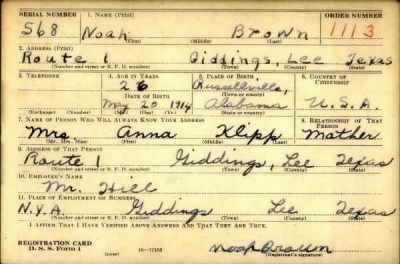 SERIAL NUMBER 1. NAME (Print) ORDER NUMBER
568 Noah Brown 1113
(First) (Middle) (Last)
2. ADDRESS (Print)
Route 1 Giddings, Lee Texas
(Number and street or R. F. D. number) (Town) (County) (State)
3. TELEPHONE 4. AGE IN YEARS 5. PLACE OF BIRTH 6. COUNTRY OF CITIZENSHIP
26 Russellville,
DATE OF BIRTH (Town or county)
May 20 1914 Alabama U.S.A.
(Exchange) (Number) (Mo.) (Day) (Yr.) (State or country)
7. NAME OF PERSON WHO WILL ALWAYS KNOW YOUR ADDRESS 8. RELATIONSHIP OF THAT PERSON
Mrs. Anna Klipp Mother
(Mr., Mrs., Miss) (First) (Middle) (Last)
9. ADDRESS OF THAT PERSON
Route 1 Giddings, Lee Texas
(Number and street or R. F. D. number) (Town) (County) (State)
10. EMPLOYER'S NAME
Mr. Hill
11. PLACE OF EMPLOYMENT OR BUSINESS
N.Y.A. Giddings Lee Texas
(Number and street or R. F. D. number) (Town) (County) (State)
I AFFIRM THAT I HAVE VERIFIED ABOVE ANSWERS AND THAT THEY ARE TRUE.
REGISTRATION CARD
D. S. S. Form 1 (over) Noah Brown
(Registrant's signature)